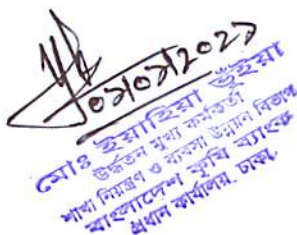 ০৭/০৭/২০২১
মোঃ ইয়াহিয়া ভূঁইয়া
উর্দ্ধতন মুখ্য কর্মকর্তা
শাখা নিয়ন্ত্রণ ও ব্যবসা উন্নয়ন বিভাগ
বাংলাদেশ কৃষি ব্যাংক
প্রধান কার্যালয়, ঢাকা।